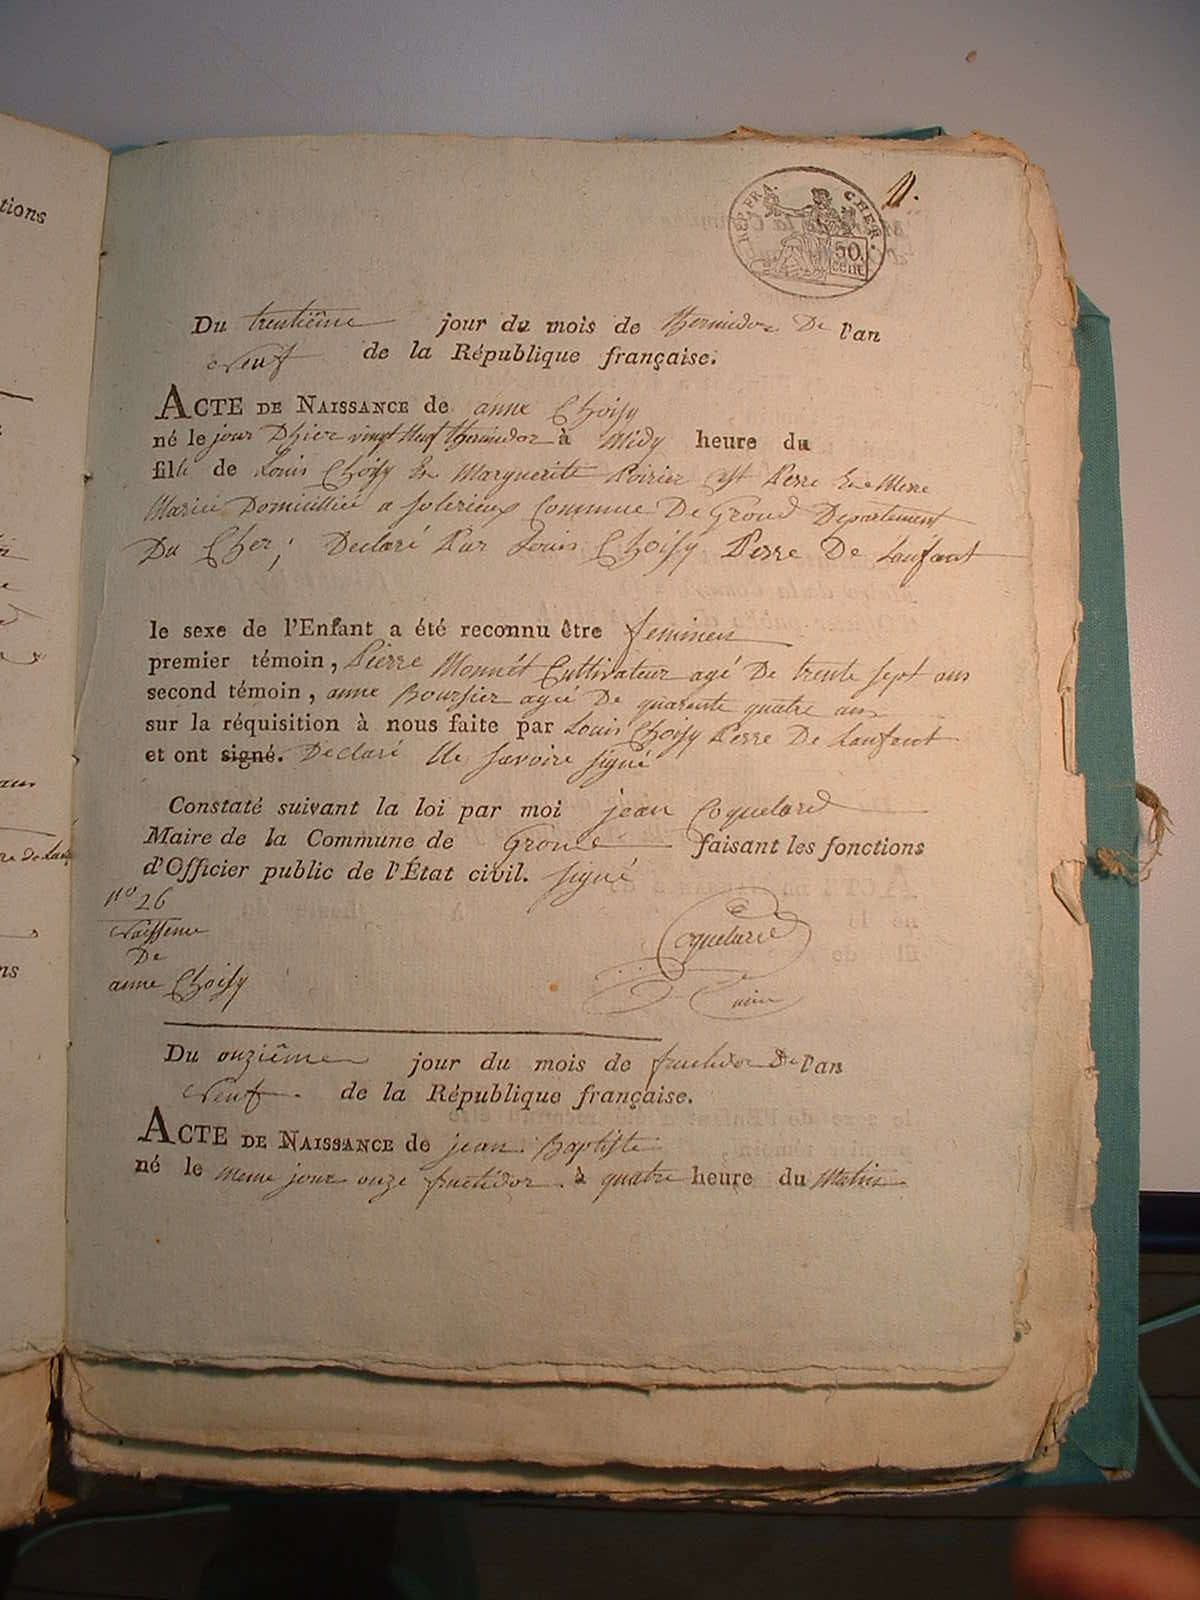 tions
11.
REP. FRA. CHER.
50 cent
Du trentiême jour du mois de thermidor De l'an
Neuf de la République française.
ACTE DE NAISSANCE de anne Choisy
né le jour Dhier vingt Neuf thermidor à Midy heure du
fille de Louis Choisy Et Marguerite Poirier est Perre Et Merre
Marié Domicillié a Solerieux Commune De Groud Departement
Du Cher; Declaré Par Louis Choisy Perre De Lanfant
le sexe de l'Enfant a été reconnu être feminen
premier témoin, Pierre Monnét Cultivateur agé De trente sept ans
second témoin, anne Boursier agée De quarente quatre ans
sur la réquisition à nous faite par Louis Choisy Perre De Lanfent
et ont signé. Declaré Ne Savoire Signé
Constaté suivant la loi par moi jean Coquelard
Maire de la Commune de faisant les fonctions
d'Officier public de l'État civil. Signé
no 26
Naissence
De
anne Choisy
Coquelard
Du onziême jour du mois de fructidor De l'an
Neuf. de la République française.
ACTE DE NAISSANCE de jean Baptiste
né le meme jour onze fructidor à quatre heure du Matin